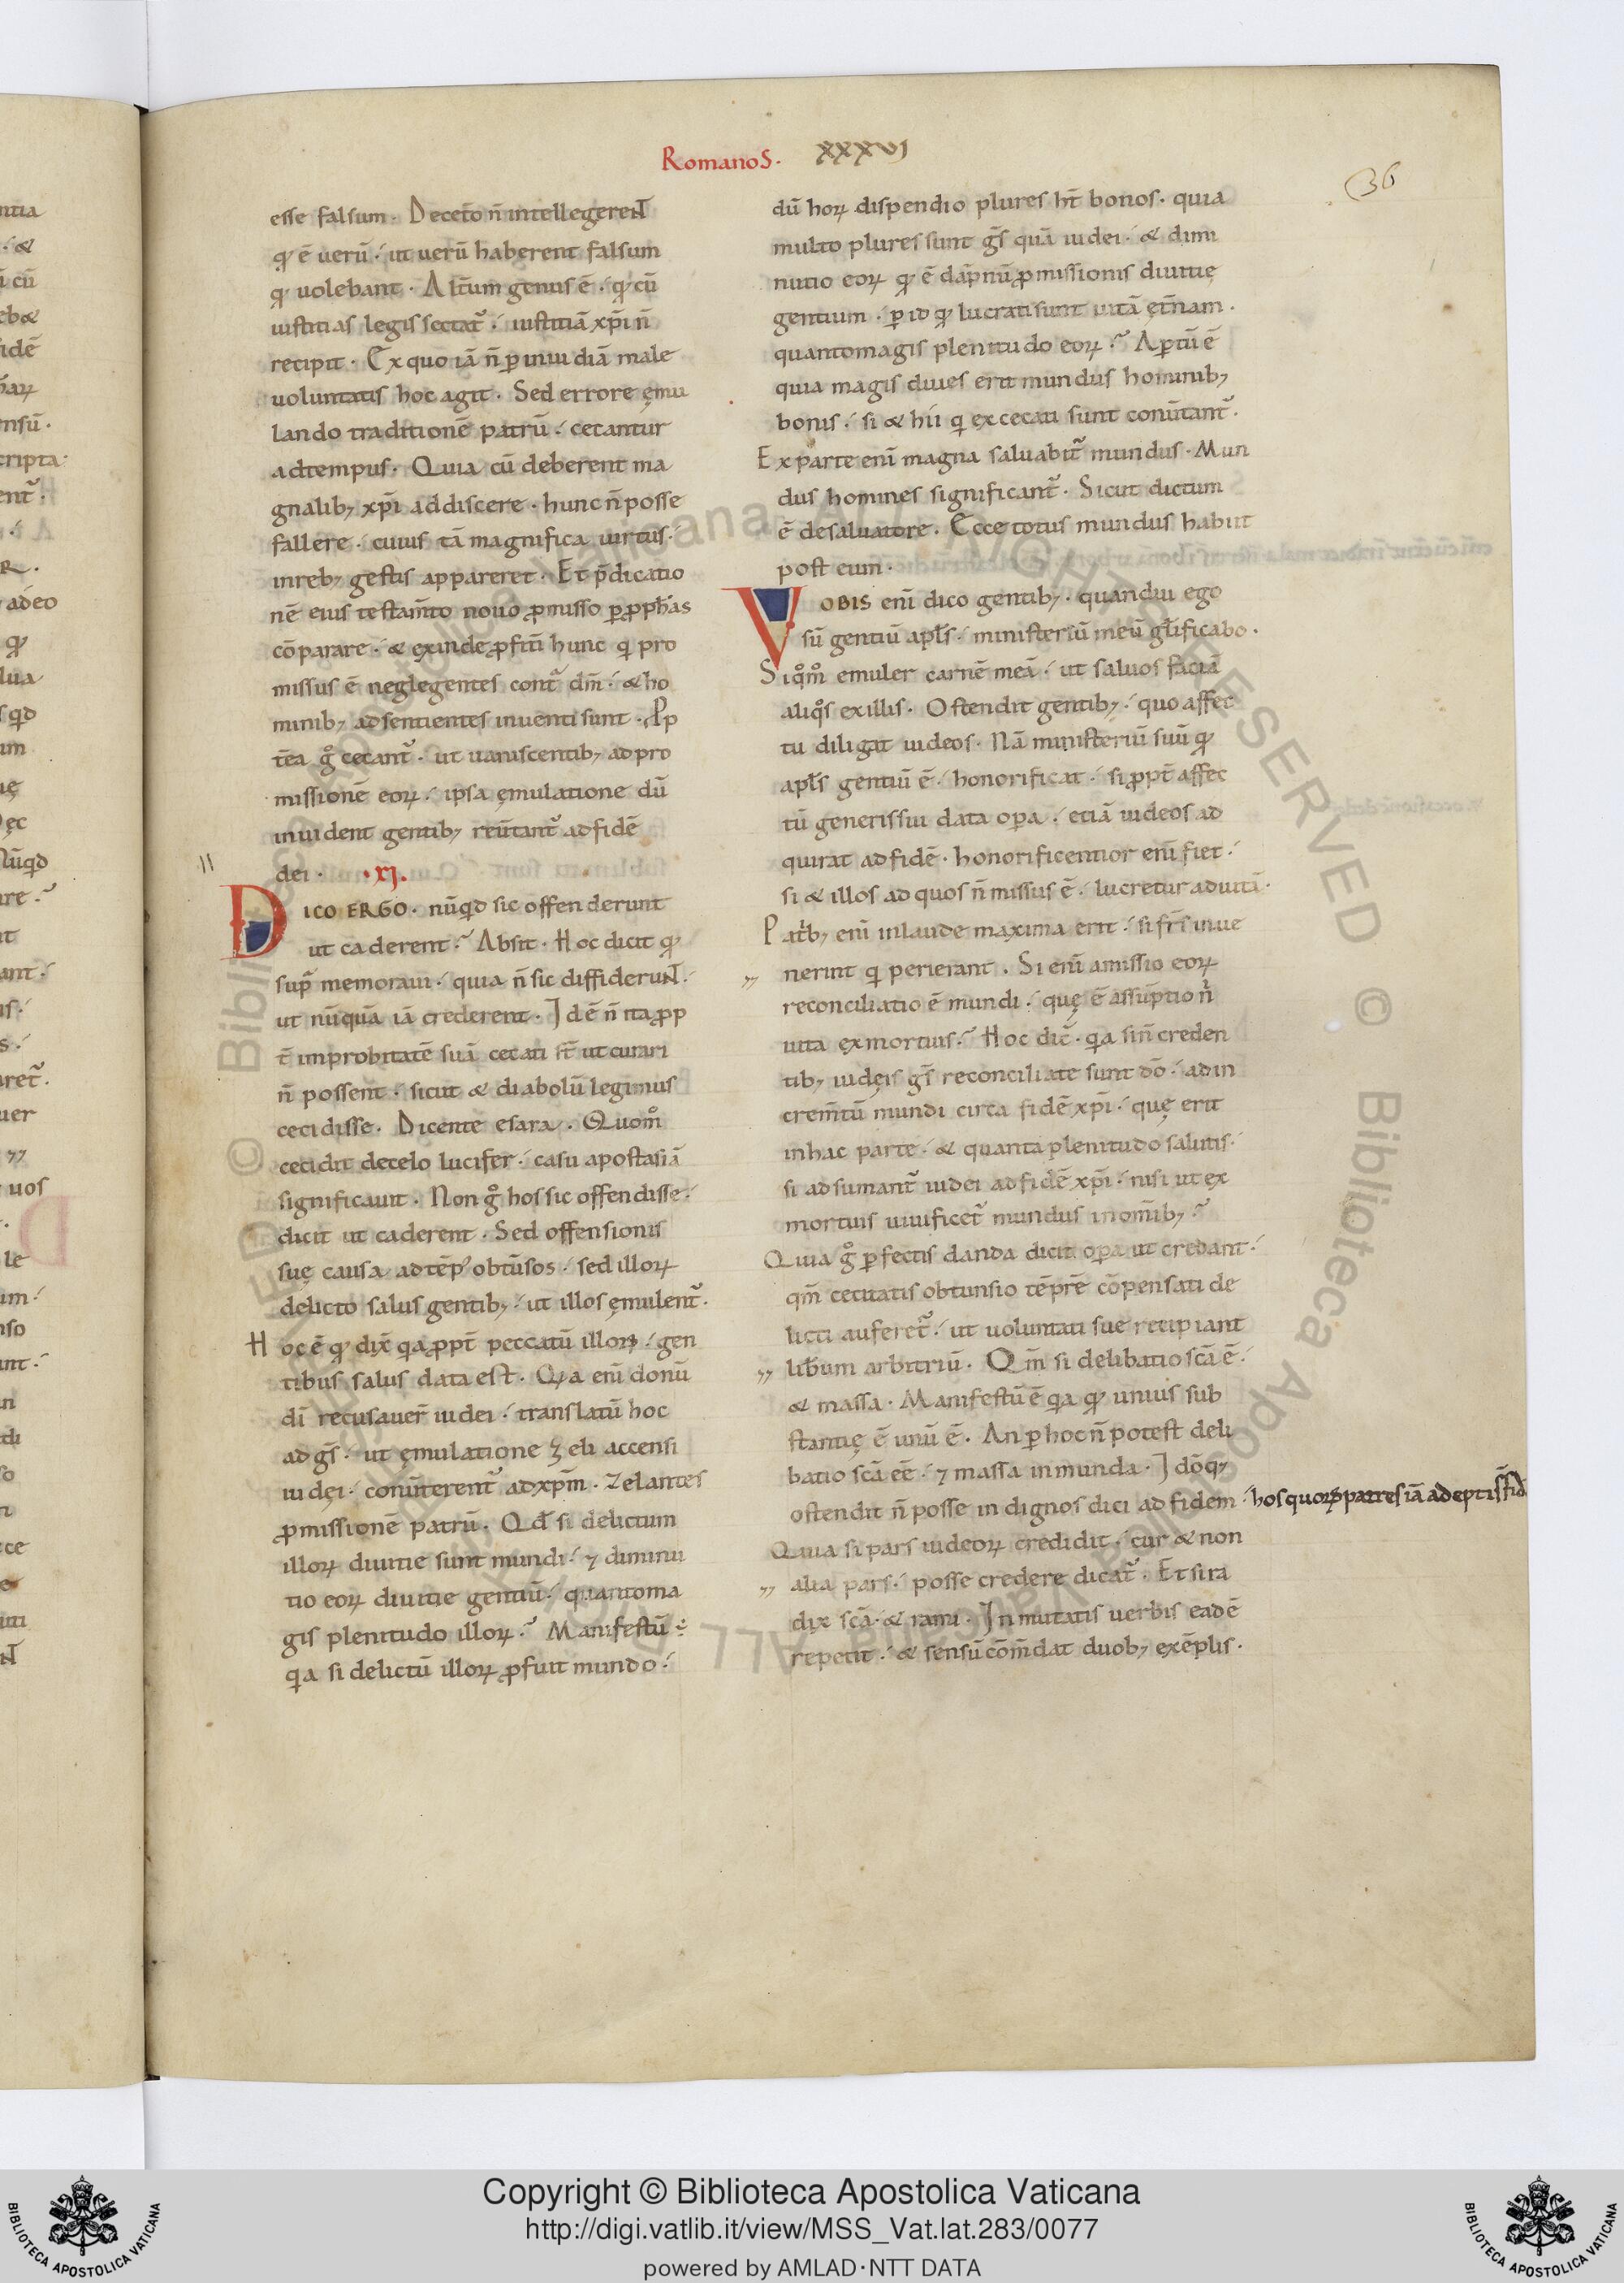 Romanos. XXXVI
36
esse falsum. Deceto n̄ intellegerent
qđ ē uerū. ut uerū haberent falsum
qđ uolebant. Alt̄um genus ē. qđ cū
iustitias legis sectat᷑. iustitiā xp̄i n̄
recipit. Ex quo iā n̄ ꝑ inuidiā male
uoluntatis hoc agit. Sed errore ęmu
lando traditionē patrū. cecantur
ad tempus. Quia cū deberent ma
gnalib; xp̄i addiscere. hunc n̄ posse
fallere. cuius tā magnifica uirtus.
in reb; gestis appareret. Et p̄dicatio
nē eius testam̄to nouo ꝓmisso ꝑ ꝓph̄as
cōparare. & exinde ꝓfit̄i hunc qi pro
missus ē neglegentes cont᷑ dm̄. & ho
minib; adsentientes inuenti sunt. Pp
t̄ea g° cecant᷑. ut uaniscentib; ad pro
missionē eoꝝ. ipsa ęmulatione dū
inuident gentib; reūtant᷑ ad fidē
dei. .XI.
11
DICO ERGO. nūqid sic offenderunt
ut caderent? Absit. Hoc dicit qđ
sup̄ memoraui. quia n̄ sic diffiderunt.
ut nūquā iā crederent. Idē n̄ ita ꝓp
t̄ improbitatē suā cecati st̄ ut curari
n̄ possent. sicut & diabolū legimus
cecidisse. Dicente esaia. Quom°
cecidit de celo lucifer. casu apostasiā
significauit. Non g° hos sic offendisse.
dicit ut caderent. Sed offensionis
suę causa ad tēp᷒ obtūsos. sed illoꝝ
delicto salus gentib;. ut illos ęmulent᷑.
Hoc ē qđ dix̄ qia ꝓpt̄ peccatū illoꝝ. gen
tibus salus data est. Qia enī donū
dī recusauer̄ iudei. translatū hoc
ad gs̄. ut ęmulatione zeli accensi
iudęi. conūterent᷑ ad xp̄m. Zelantes
ꝓmissionē patrū. Qđ si delictum
illoꝝ diuitie sunt mundi. ⁊ diminu
tio eoꝝ diuitie gentiū. quantoma
gis plenitudo illoꝝ? Manifestū ÷
qia si delictū illoꝝ ꝓfuit mundo.
dū hoꝝ dispendio plures ht̄ bonos. quia
multo plures sunt gs̄ quā iudei. & dimi
nutio eoꝝ qđ ē dāpnū ꝓmissionis diuitię
gentium. ꝑ id qđ lucrati sunt uitā ęt̄nam.
quantomagis plenitudo eoꝝ? Aꝑtū ē
quia magis diues erit mundus hominib;
bonis. si & hii qi excecati sunt conūtant᷑.
Ex parte enī magna saluabit᷑ mundus. Mun
dus homines significant᷑. Sicut dictum
ē de saluatore. Ecce totus mundus habiit
post eum.
VOBIS enī dico gentib;. quandiu ego
sū gentiū apl̄s. ministeriū meū gl̄ificabo.
Siq°m° emuler carnē meā. ut saluos faciā
aliq°s ex illis. Ostendit gentib;. quo affec
tu diligat iudeos. Nā ministeriū suū qđ
apl̄s gentiū ē. honorificat. si ꝓpt̄ affec
tū generis sui data oꝑa. etiā iudeos ad
quirat ad fidē. honorificentior enī fiet.
si & illos ad quos n̄ missus ē. lucretur ad uitā.
Patb; enī in laude maxima erit. si fr̄s inue
nerint qi perierant. Si enī amissio eoꝝ
reconciliatio ē mundi. quę ē assūptio n̄
uita ex mortuis? Hoc dic̄. qia si n̄ creden
tib; iudęis gs̄ reconciliate sunt dō. ad in
crem̄tū mundi circa fidē xp̄i. quę erit
in hac parte. & quanta plenitudo salutis.
si adsumant᷑ iudei ad fidē xp̄i. nisi ut ex
mortuis uiuificet᷑ mundus in om̄ib;?
Quia g° ꝑfectis danda dicit oꝑa ut credant.
qm̄ cecitatis obtunsio tēpre cōpensati de
licti auferet᷑. ut uoluntati sue recipiant
lib̄um arbitriū. Qm̄ si delibatio scā ē.
& massa. Manifestū ē qia qđ unius sub
stantię ē unū ē. An ꝑ hoc n̄ potest deli
batio scā eē. ⁊ massa inmunda. Idōq;
ostendit n̄ posse indignos dici ad fidem. hos quoꝝ patres iā adepti st̄ fidē
Quia si pars iudeoꝝ credidit. cur & non
alia pars. posse credere dicat᷑. Et si ra
dix scā. & rami. Inmutatis uerbis eadē
repetit. & sensū cōm̄dat duob; exēplis.
Copyright © Biblioteca Apostolica Vaticana
http://digi.vatlib.it/view/MSS_Vat.lat.283/0077
powered by AMLAD·NTT DATA